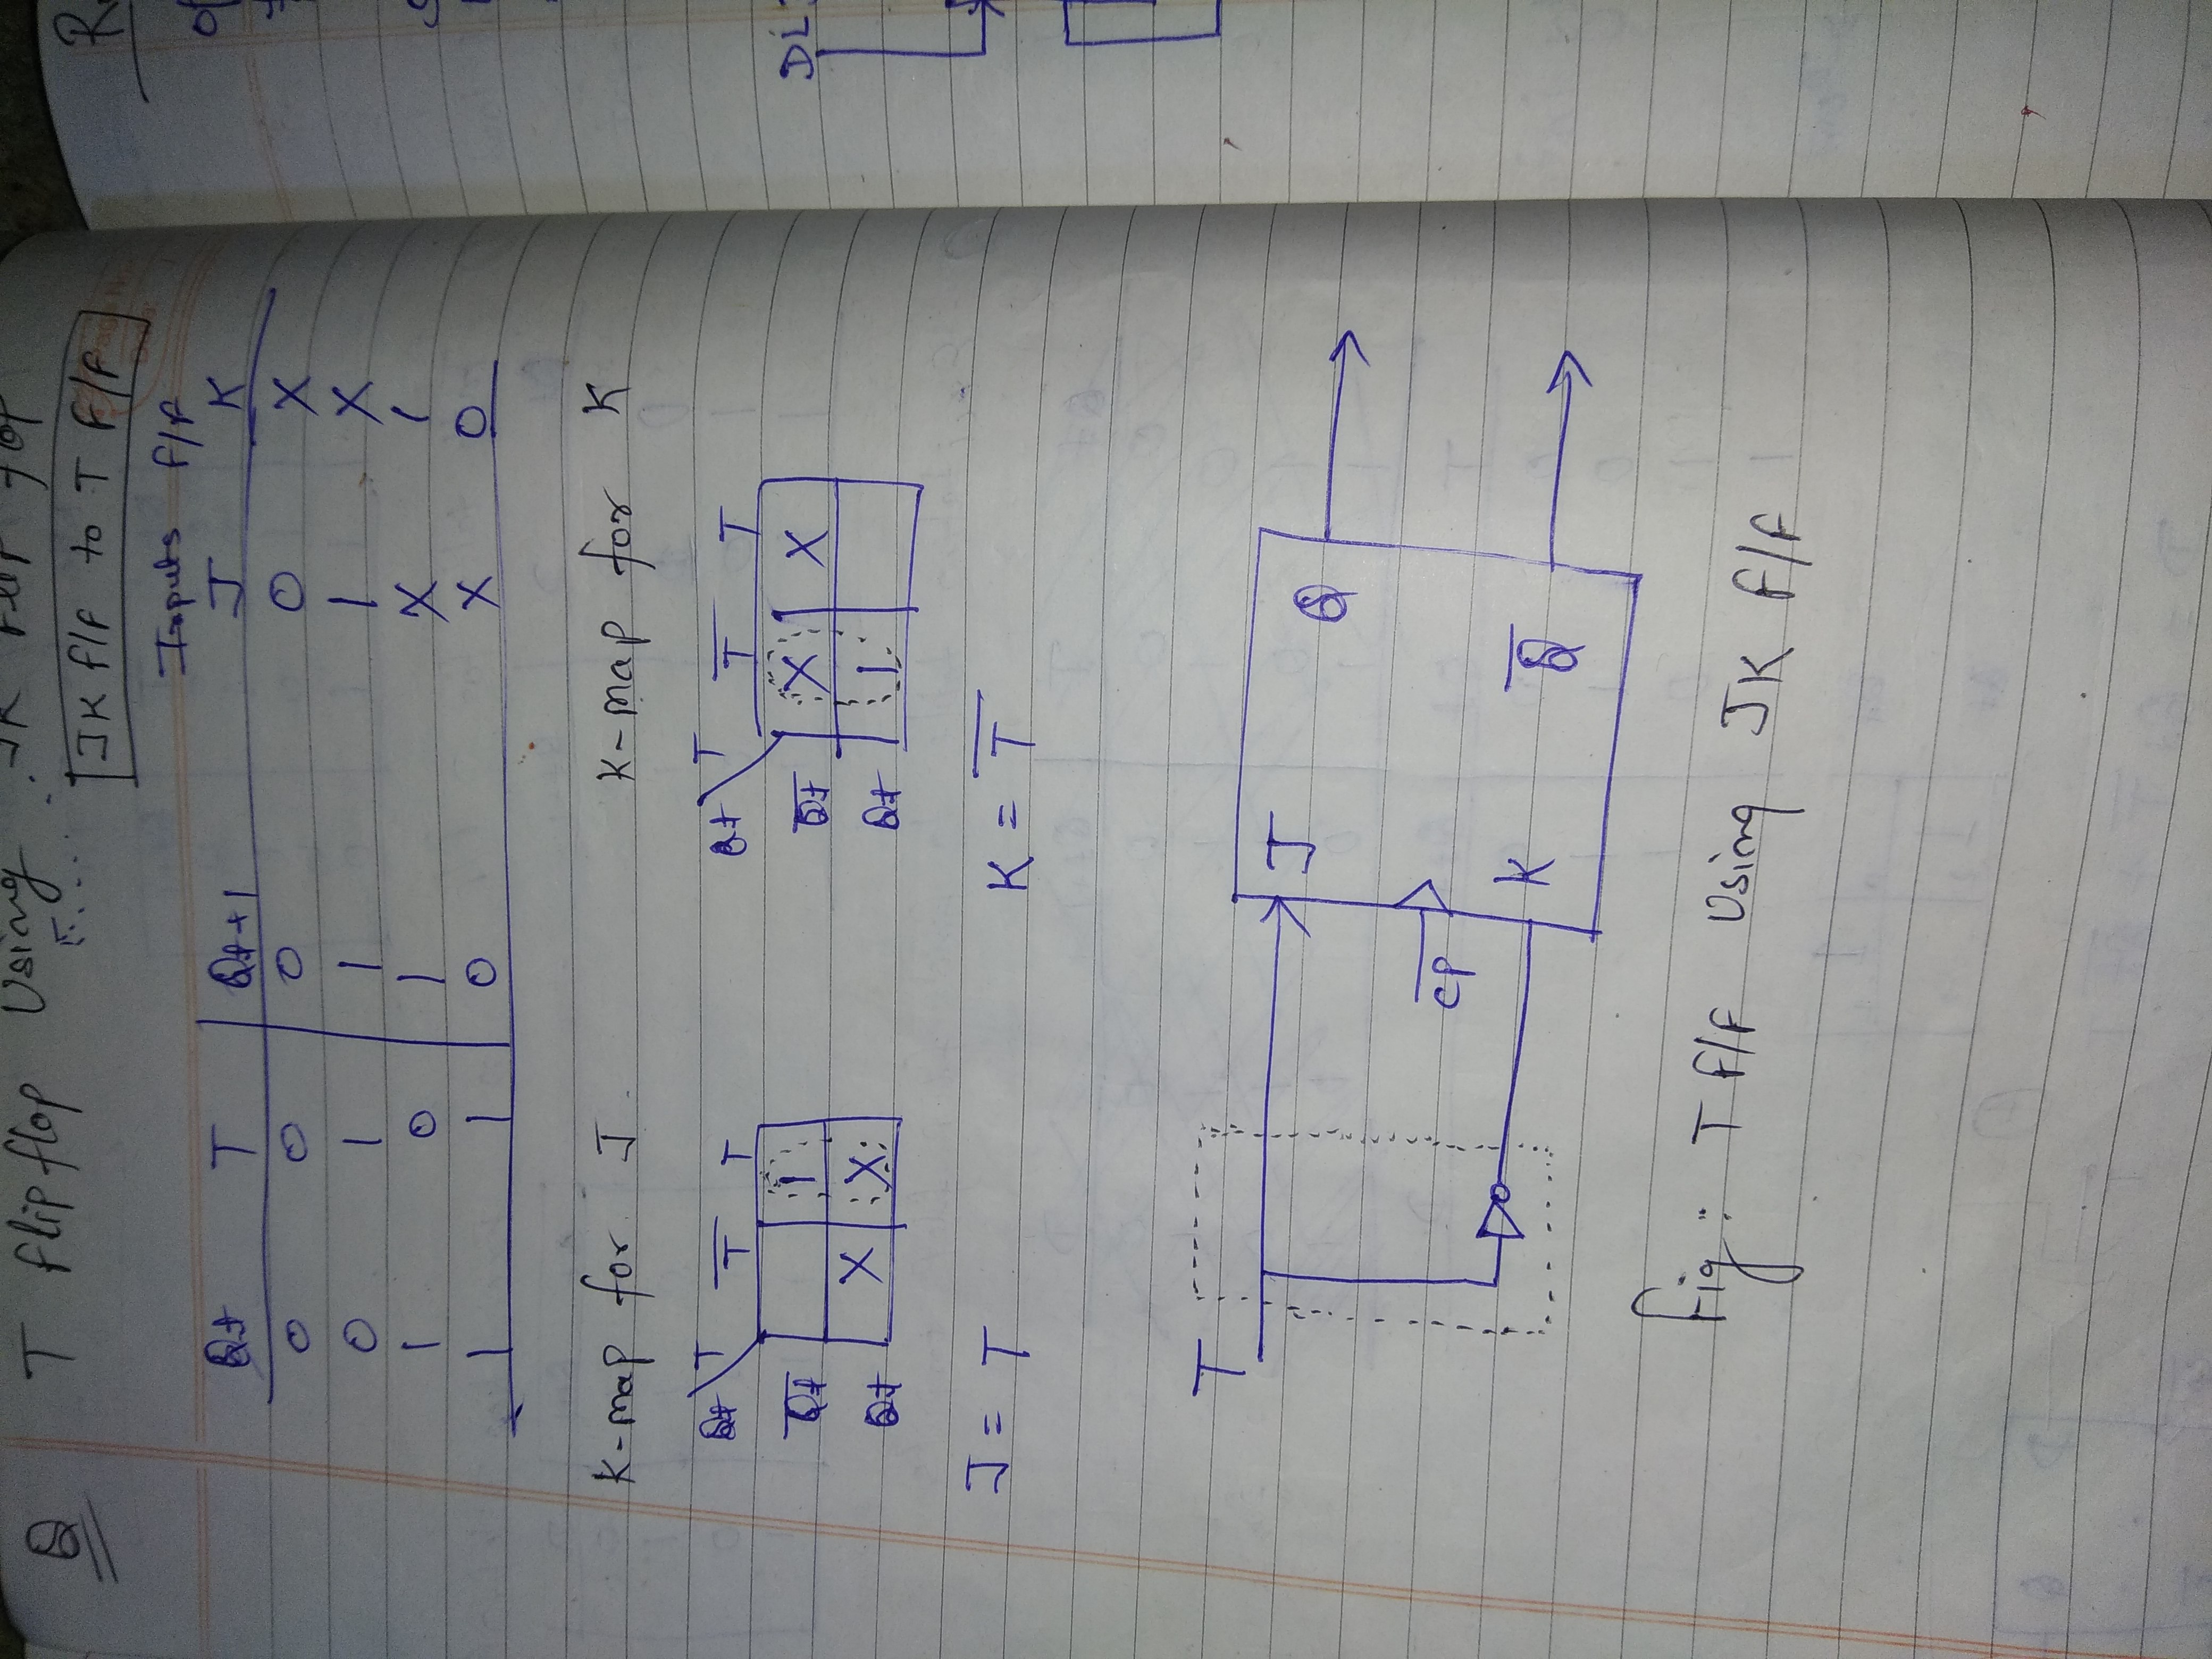 Q
T flip flop Using JK flip flop
JK f/f to T f/f
Inputs f/f
Qt T Qt+1 J K
0 0 0 0 X
0 1 1 1 X
1 0 1 X 1
1 1 0 X 0
K-map for J K-map for K
Qt T T̅ T Qt T T̅ T
Q̅t̅ 1 Q̅t̅ X X
Qt X X Qt 1
J = T K = T̅
T J Q
C̅P̅
K Q̅
fig: T f/f Using JK f/f
Di